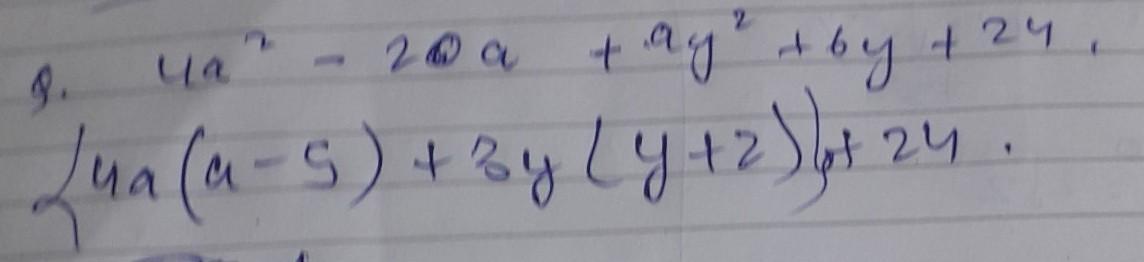 9. 4a² - 20a + 9y² + 6y + 24.
{4a(a-5) + 3y(y+2)} + 24.